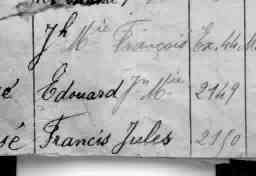 Jh Mie François Ex. 44 M
Edouard Jn Mie 2149
sé Francis Jules 2150